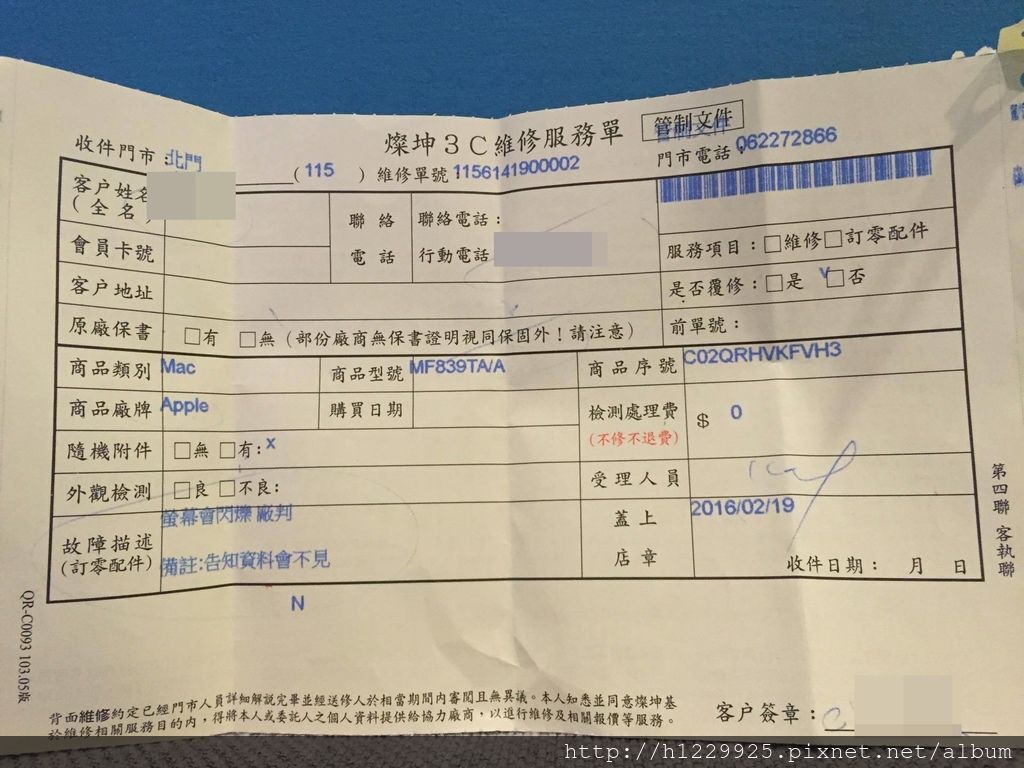 燦坤3C維修服務單 管制文件
收件門市：北門 (115) 維修單號：1156141900002 門市電話：062272866
客戶姓名
(全名)
聯絡電話
聯絡電話：
行動電話
會員卡號
服務項目：□維修□訂零配件
客戶地址
是否覆修：□是 v□否
原廠保書 □有 □無 (部份廠商無保書證明視同保固外！請注意)
前單號：
商品類別 Mac 商品型號 MF839TA/A 商品序號 C02QRHVKFVH3
商品廠牌 Apple 購買日期
檢測處理費 $ 0
(不修不退費)
隨機附件 □無 □有: x
受理人員
外觀檢測 □良 □不良：
故障描述
(訂零配件)
螢幕會閃爍 廠判
備註:告知資料會不見
N
蓋上店章 2016/02/19
收件日期： 月 日
第四聯 客執聯
QR-C0093 103.05版
背面維修約定已經門市人員詳細解說完畢並經送修人於相當期間內審閱且無異議。本人知悉並同意燦坤基
於維修相關服務目的內，得將本人或委託人之個人資料提供給協力廠商，以進行維修及相關報價等服務。
客戶簽章：
http://h1229925.pixnet.net/album